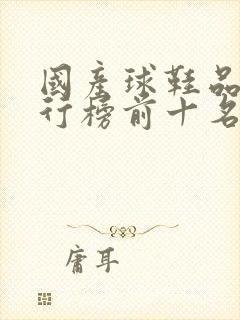 國產球鞋品
行榜前十名
庸耳